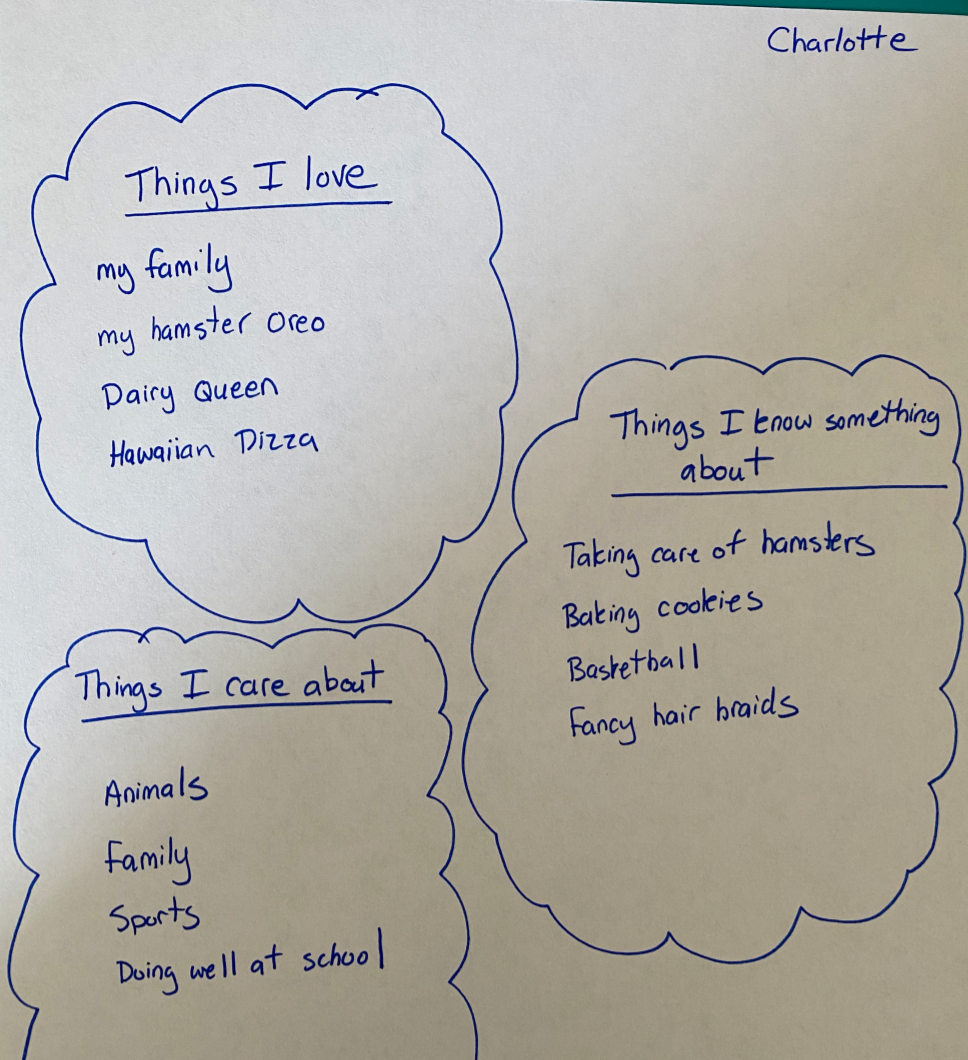 Charlotte
Things I love
my family
my hamster Oreo
Dairy Queen
Hawaiian Pizza
Things I know something
about
Taking care of hamsters
Baking cookies
Basketball
Fancy hair braids
Things I care about
Animals
Family
Sports
Doing well at school